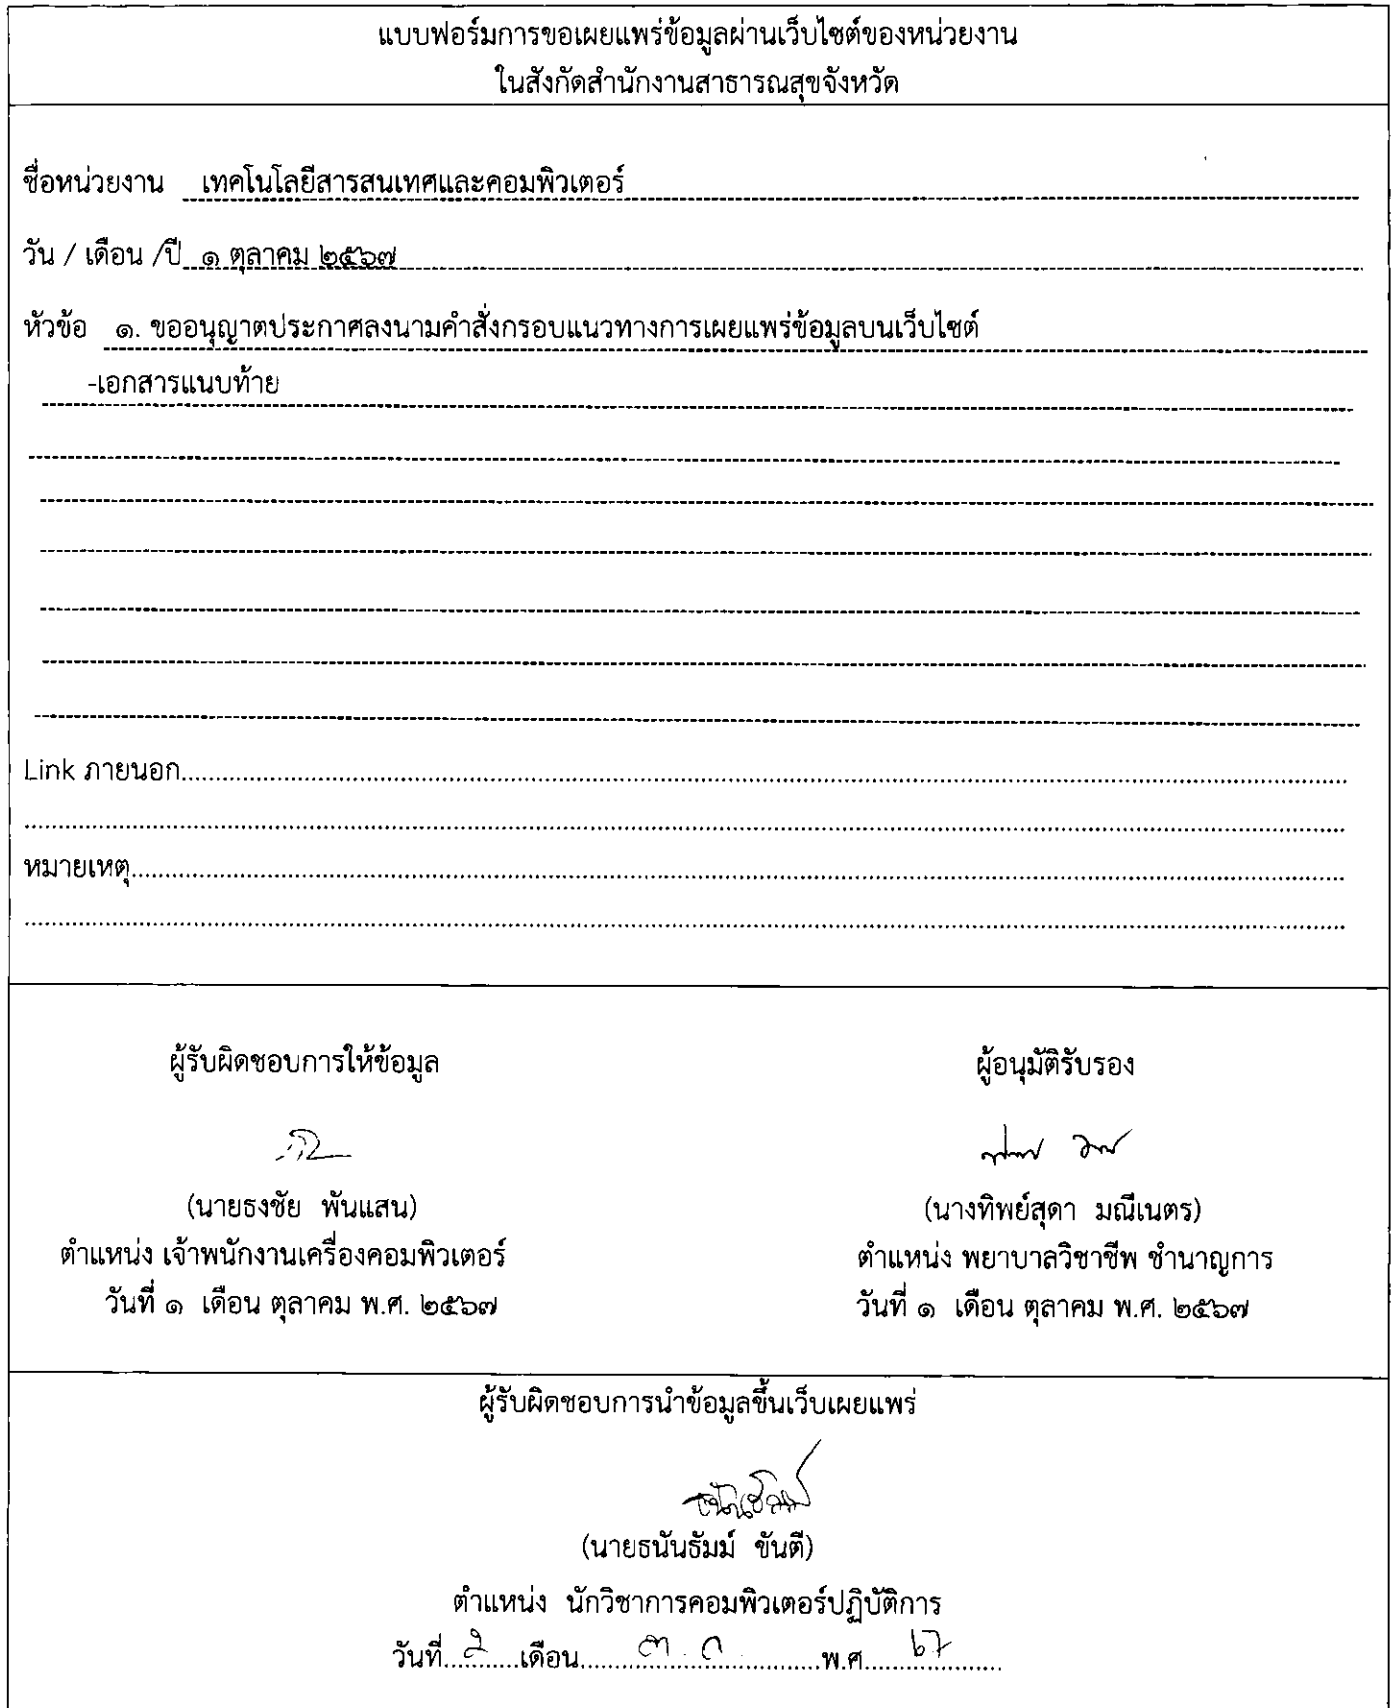 แบบฟอร์มการขอเผยแพร่ข้อมูลผ่านเว็บไซต์ของหน่วยงาน
ในสังกัดสำนักงานสาธารณสุขจังหวัด
ชื่อหน่วยงาน เทคโนโลยีสารสนเทศและคอมพิวเตอร์
วัน / เดือน /ปี ๑ ตุลาคม ๒๕๖๗
หัวข้อ ๑. ขออนุญาตประกาศลงนามคำสั่งกรอบแนวทางการเผยแพร่ข้อมูลบนเว็บไซต์
-เอกสารแนบท้าย
Link ภายนอก
หมายเหตุ
ผู้รับผิดชอบการให้ข้อมูล ผู้อนุมัติรับรอง
(นายธงชัย พันแสน) (นางทิพย์สุดา มณีเนตร)
ตำแหน่ง เจ้าพนักงานเครื่องคอมพิวเตอร์ ตำแหน่ง พยาบาลวิชาชีพ ชำนาญการ
วันที่ ๑ เดือน ตุลาคม พ.ศ. ๒๕๖๗ วันที่ ๑ เดือน ตุลาคม พ.ศ. ๒๕๖๗
ผู้รับผิดชอบการนำข้อมูลขึ้นเว็บเผยแพร่
(นายธนันธัมม์ ขันตี)
ตำแหน่ง นักวิชาการคอมพิวเตอร์ปฏิบัติการ
วันที่ เดือน ต.ค. พ.ศ. ๖๗